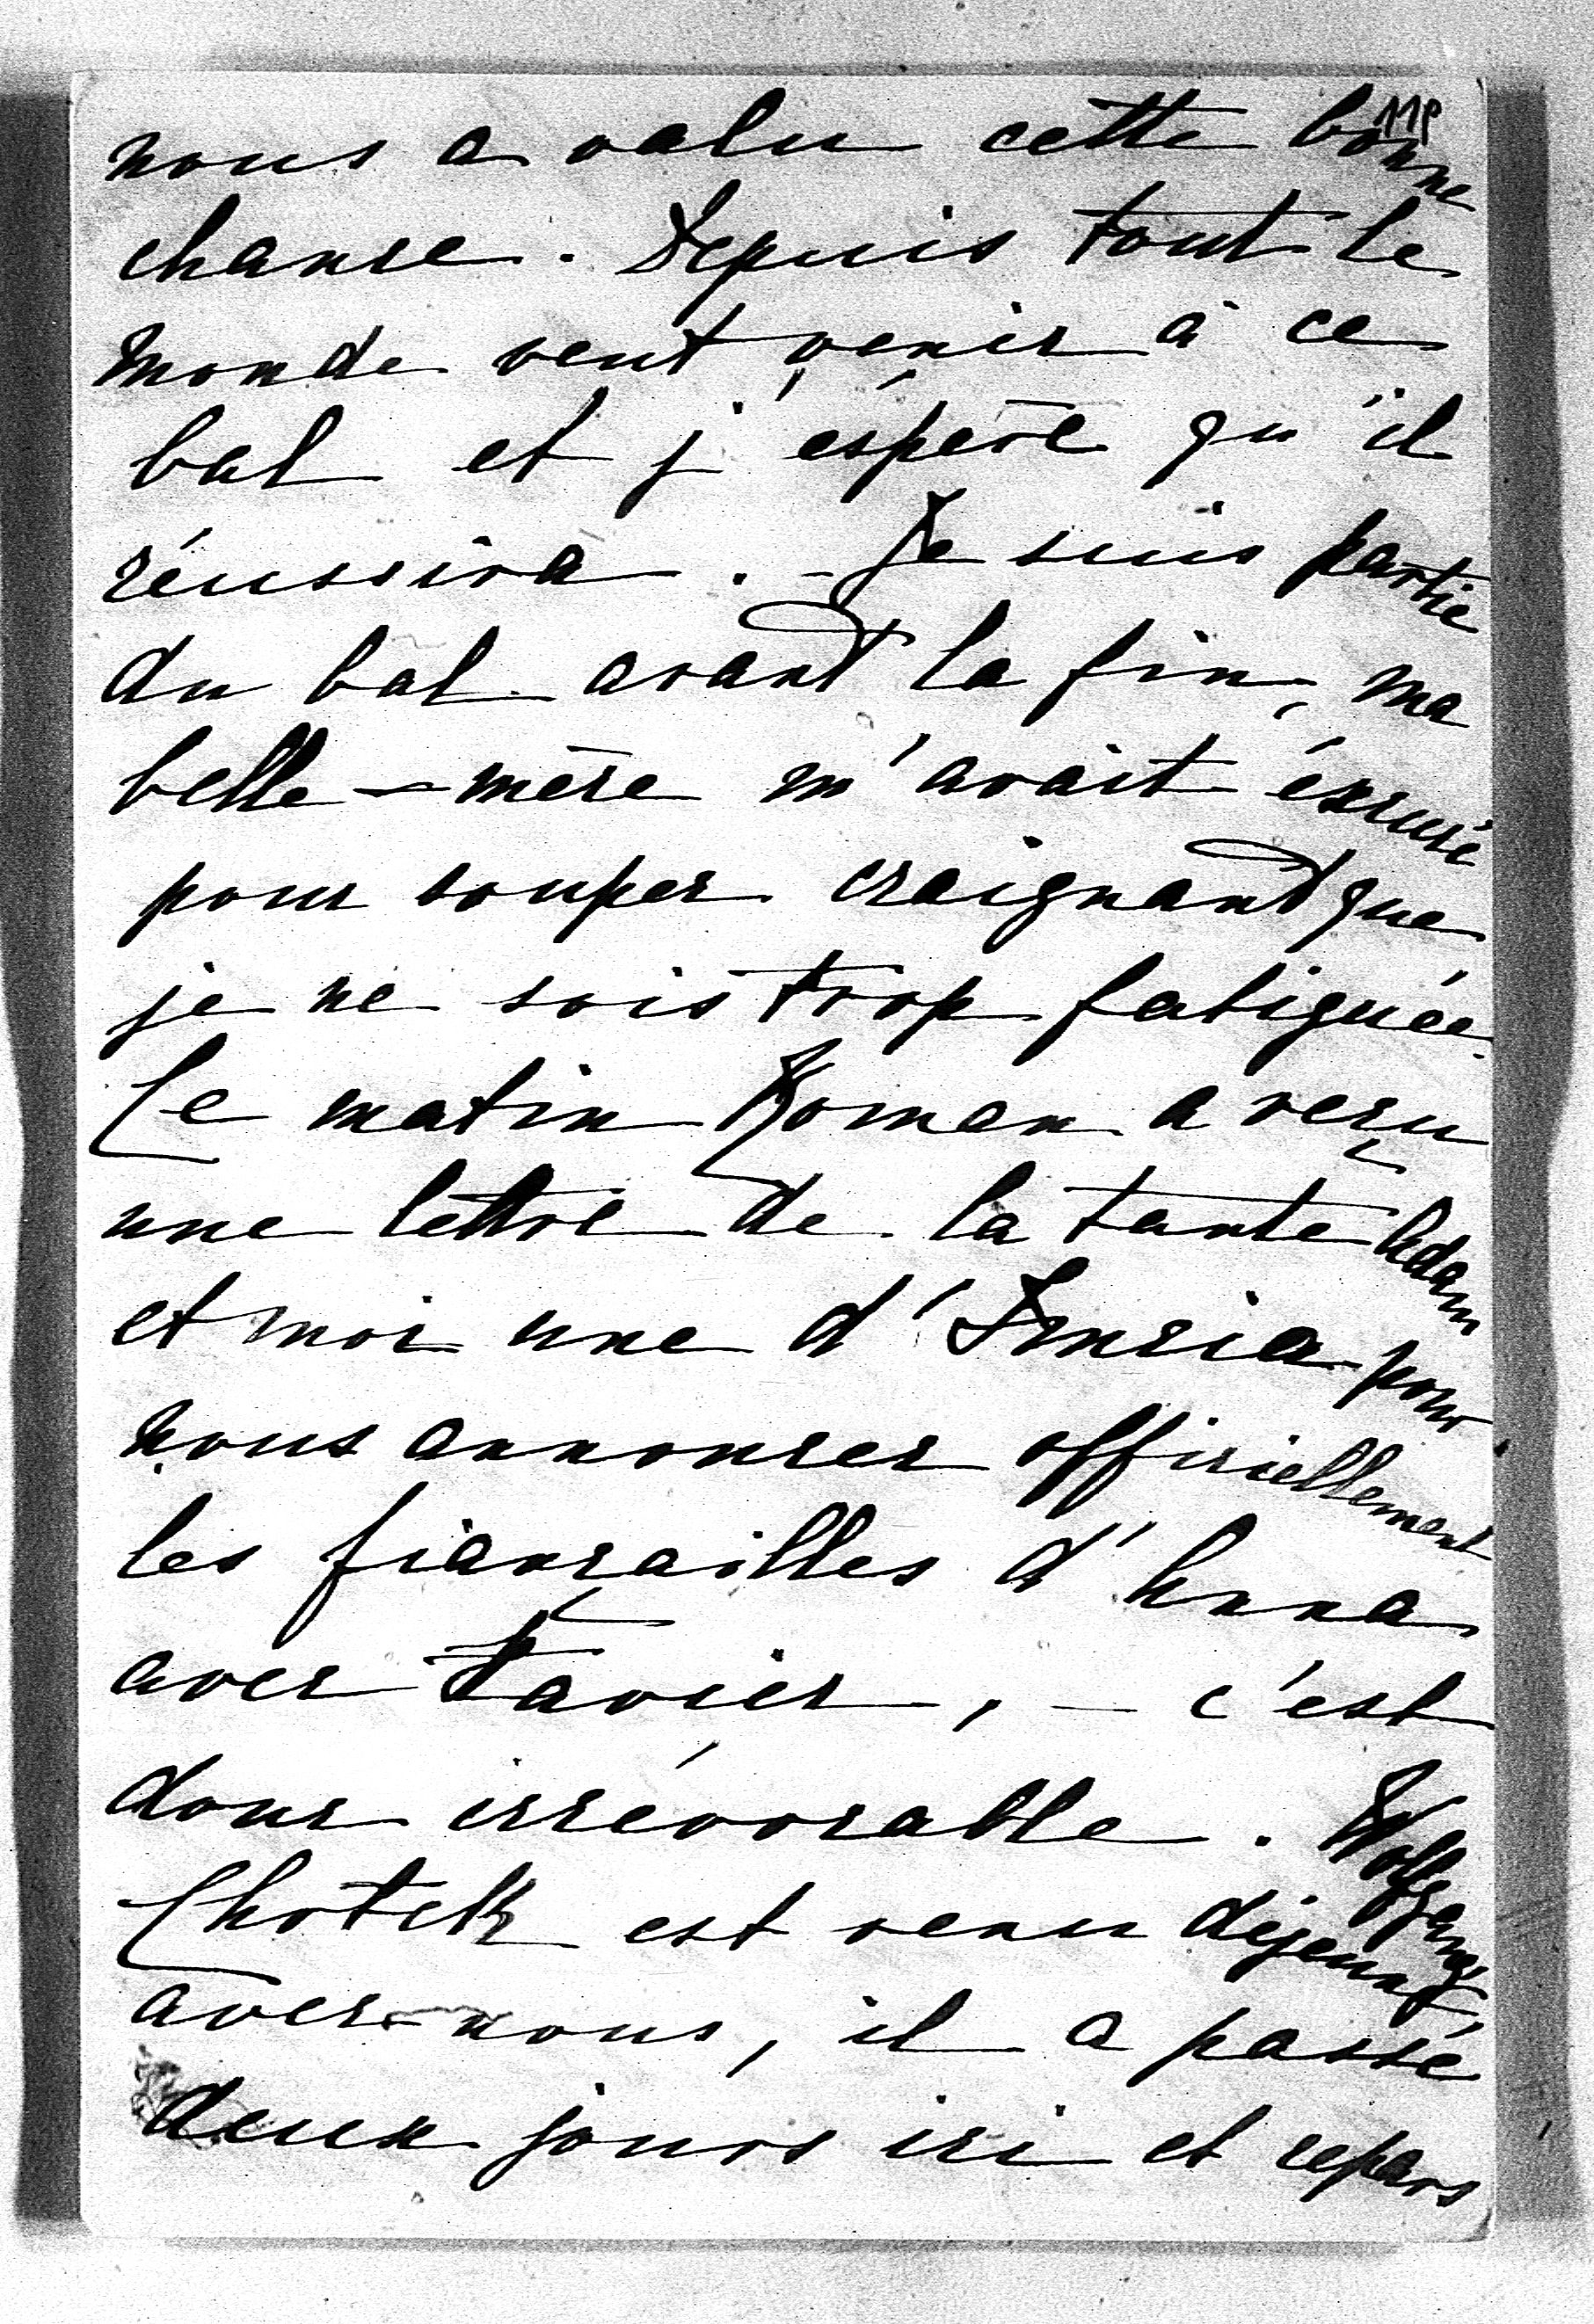 119
nous a valu cette bonne
chance. Depuis tout le
monde veut venir à ce
bal et j'éspère qu'il
réussira. - Je suis partie
du bal avant la fin, ma
belle-mère m'avait éxcusé
pour souper craignant que
je ne sois trop fatiguée.
Ce matin Roman a reçu
une lettre de la tante Adam
et moi une d'Imcia pour
nous annoncer officiellement
les fiançailles d'Anna
avec Xavier, - c'est
donc irrévocable. Wolfgang
Chotek est venu déjeuner
avec nous, il a passé
deux jours ici et repars